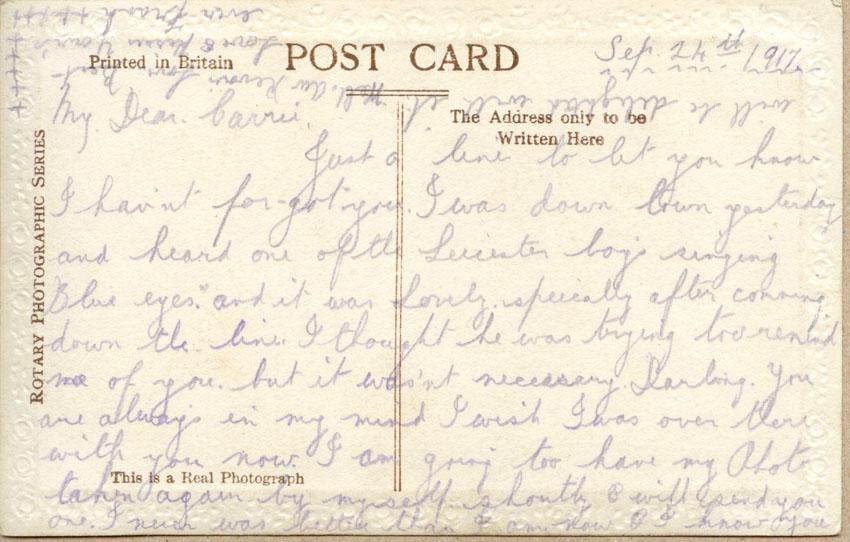 Printed in Britain
POST CARD
Sep. 24th 1917
The Address only to be
Written Here
ROTARY PHOTOGRAPHIC SERIES
This is a Real Photograph
My Dear Carrie,
Just a line to let you know
I hav'nt for-got you. I was down town yesterday
and heard one of the Leicester boys singing
Blue eyes." and it was lovely. specially after comming
down the line. I thought he was trying too remind
me of you. but it was'nt necessary. Darling. You
are always in my mind I wish I was over there
with you now. I am going too have my Photo
taken again by myself. shortly & will send you
one. I never was better than I am now & I know you
will be delighted with it. Well. Au Revoir
Love &
ever Frank ++++
+++++